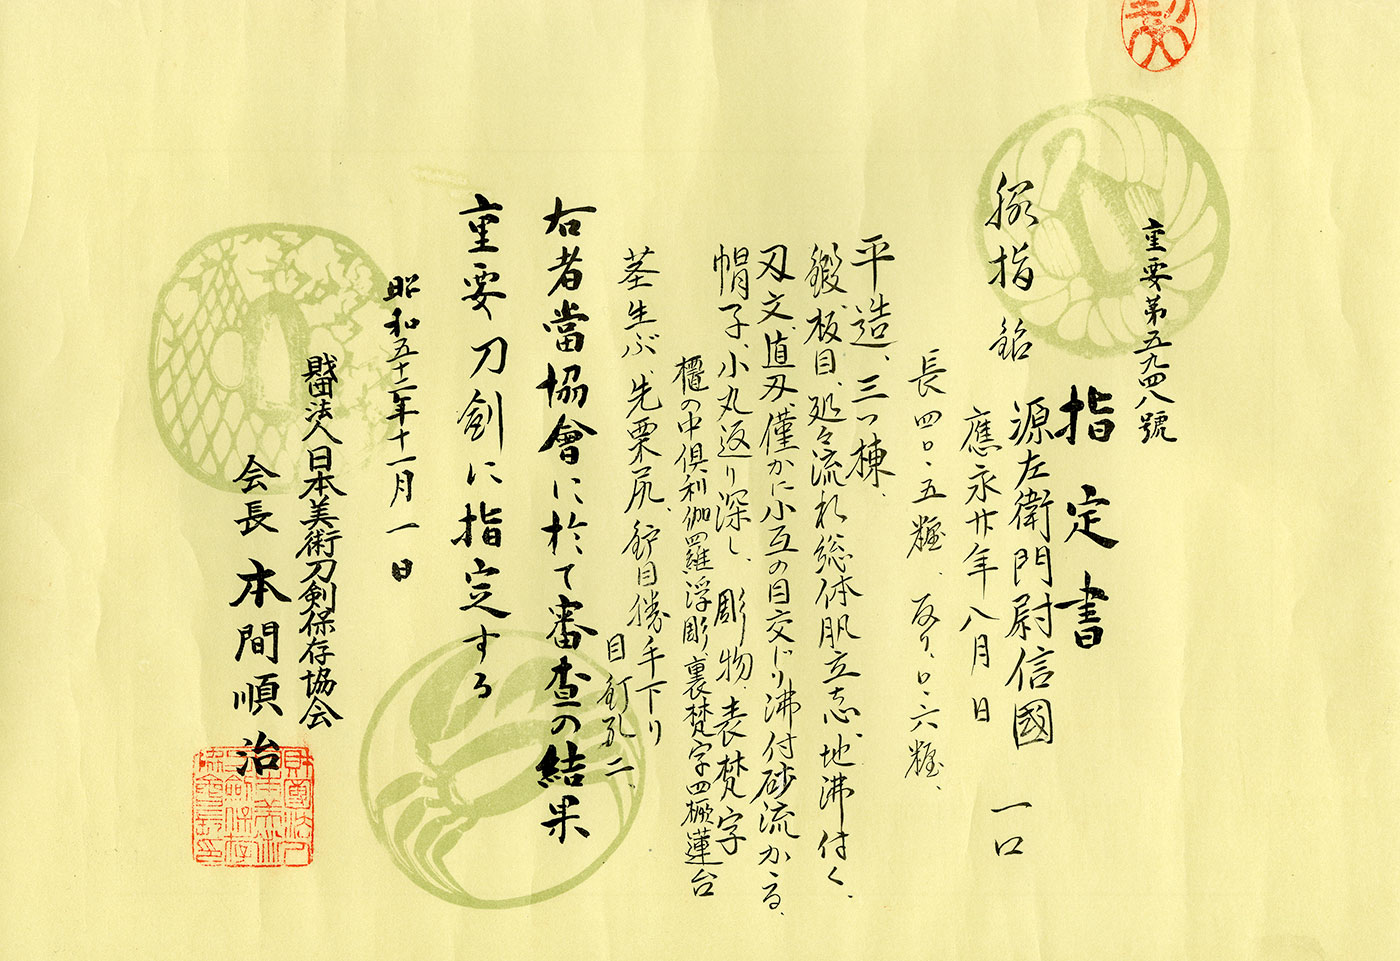 重要第五九四八號
指定書
脇指 銘 源左衛門尉信國 一口
應永廿年八月日
長四〇・五糎、反り、〇・六糎、
平造、三ツ棟、
鍛、板目、処々流れ総体肌立心、地沸付く、
刃文、直刃、僅かに小互の目交じり沸付砂流かゝる、
帽子、小丸返り深し、彫物、表梵字
櫃の中倶利伽羅浮彫、裏梵字四橛蓮台
茎生ぶ、先栗尻、鈩目勝手下り
目釘孔二、
右者當協會に於て審査の結果
重要刀剣に指定する
昭和五十二年十一月一日
財団法人日本美術刀剣保存協会
会長 本間順治